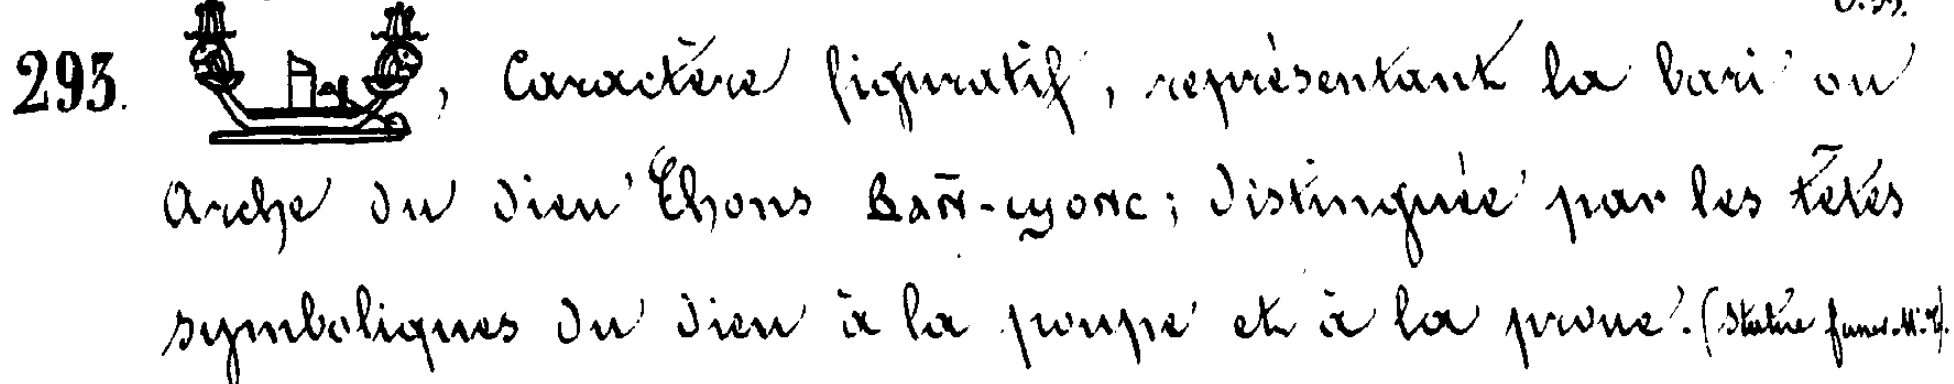 293. , Caractère figuratif, représentant la bari ou
Arche du dieu Chons ⲃⲁⲣⲓ-ϣⲟⲛⲥ; distinguée par les têtes
symboliques du dieu à la poupe et à la proue. (Statue funer. M. T.)